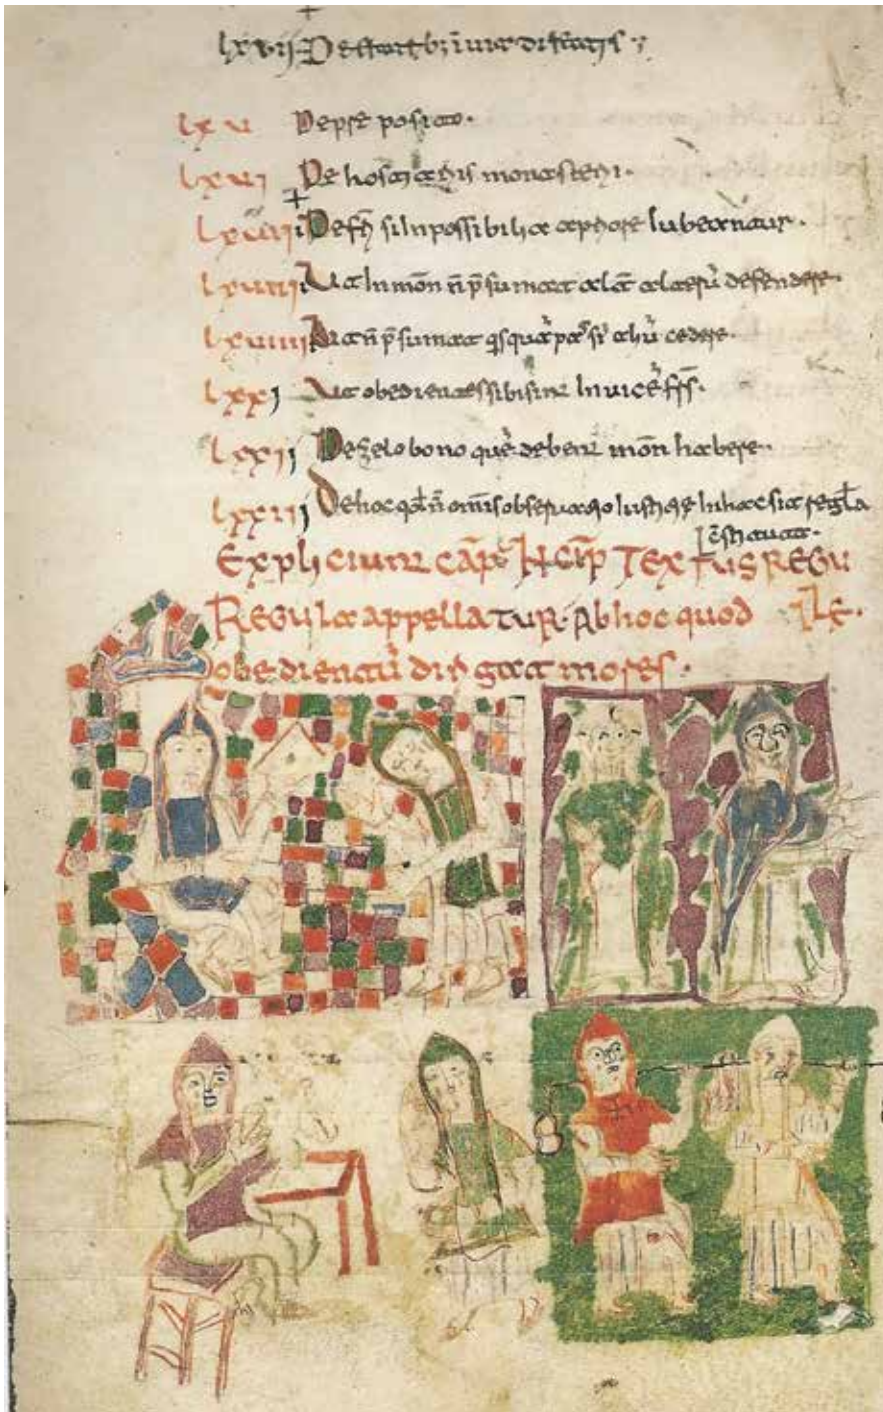 lxvij De fratrib; ī via directis
lxv De p̄re posito.
lxvi De hostiariis monasterii.
lxviii De fr̄ si Inpossibilia a priore Iubeantur.
lxviiii Ut In mon̄ n̄ p̄sumat alt̄ alterū defendere.
lxviiii Ut n̄ p̄sumat qisquā pas̄ sī aliū cedere.
lxxi Ut obedientes sibi sint Invicē fr̄s.
lxxii De zelo bono quē debent mon̄ habere.
lxxiii De hoc qd̄ n̄ om̄is observatio Iustitie In hac sit regl̄a
c̄stituta.
Expliciunt cap̄ Incip̄ Textus REGU
REGUla appellatur. Ab hoc quod lE.
obedientiū dirigat mores.